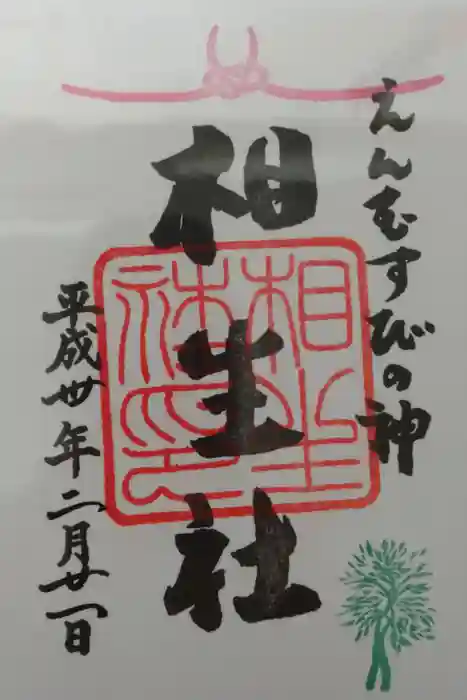 えんむすびの神
相生社
相生社印
平成卅年二月廿一日